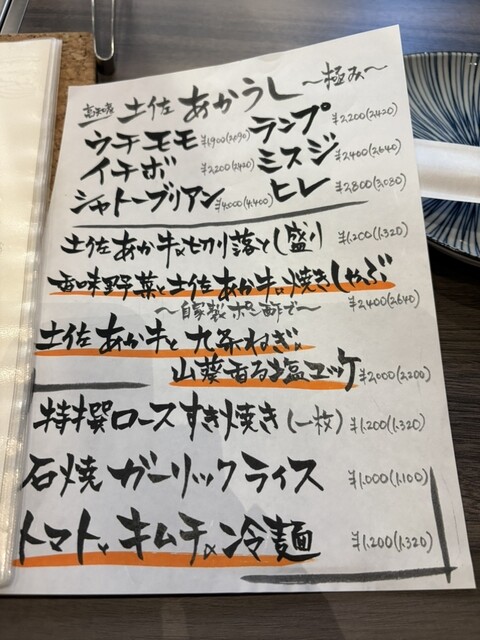 高知産 土佐あかうし 〜極み〜
ウチモモ ¥1,900(2,090) ランプ ¥2,200(2,420)
イチボ ¥2,200(2,420) ミスジ ¥2,400(2,640)
シャトーブリアン ¥4,000(4,400) ヒレ ¥2,800(3,080)
土佐あか牛切り落とし盛り ¥1,200(1,320)
香味野菜と土佐あか牛の焼きしゃぶ
〜自家製ポン酢で〜 ¥2,400(2,640)
土佐あか牛と九条ねぎの
山葵香る塩ユッケ ¥2,000(2,200)
特撰ロースすき焼き(一枚) ¥1,200(1,320)
石焼ガーリックライス ¥1,000(1,100)
トマトとキムチの冷麺 ¥1,200(1,320)